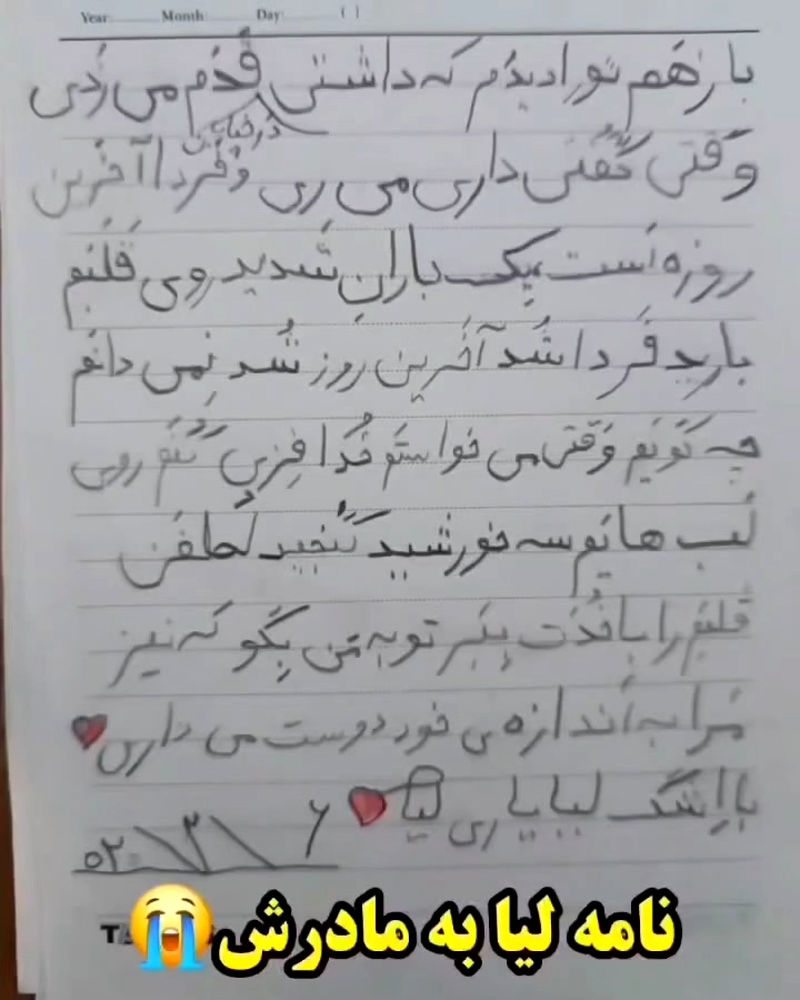 Year Month Day
باز هم تو را دیدم که داشتی قدم می زدی
در خیابان
وقتی گفتی داری می ری و فردا آخرین
روزه است یک باران شدید روی قلبم
بارید فردا شد آخرین روز شد نمی دانم
چه گویم وقتی می خواستم خدافزی کنم روی
لب هایم سه خورشید گنجید لطفن
قلبم را با خدت ببر تو به من بگو که نیز
مرا به اندازه ی خود دوست می داری
با اشک لیا یاری لیا
نامه لیا به مادرش